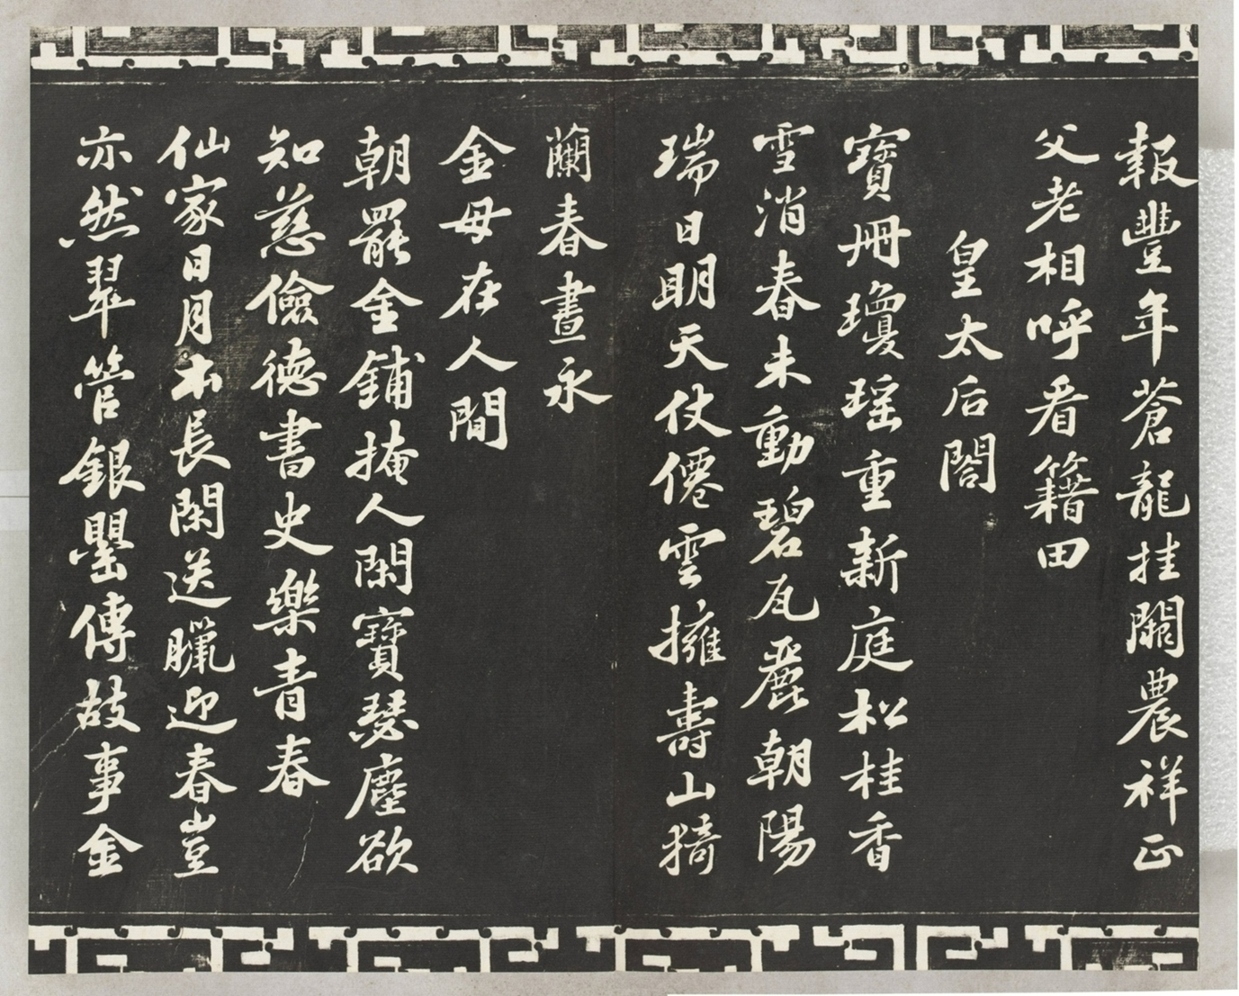 報豐年蒼龍挂闕農祥正
父老相呼看籍田
皇太后閤
寶冊瓊瑤重新庭松桂香
雪消春未動碧瓦麗朝陽
瑞日明天仗僊雲擁壽山猗
蘭春晝永
金母在人間
朝罷金鋪掩人閑寶瑟塵欲
知慈儉德書史樂青春
仙家日月本長閑送臘迎春豈
亦然翠管銀罌傳故事金